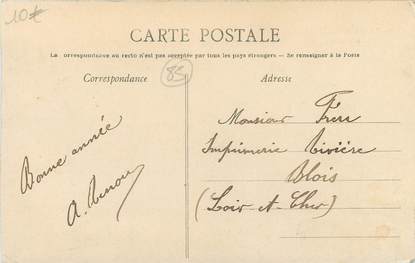 10€
CARTE POSTALE
La correspondance au recto n'est pas acceptée par tous les pays étrangers — Se renseigner à la Poste
85
Correspondance
Adresse
Bonne année
A.
Monsieur
Imprimerie Rivière
Blois
(Loir-et-Cher)